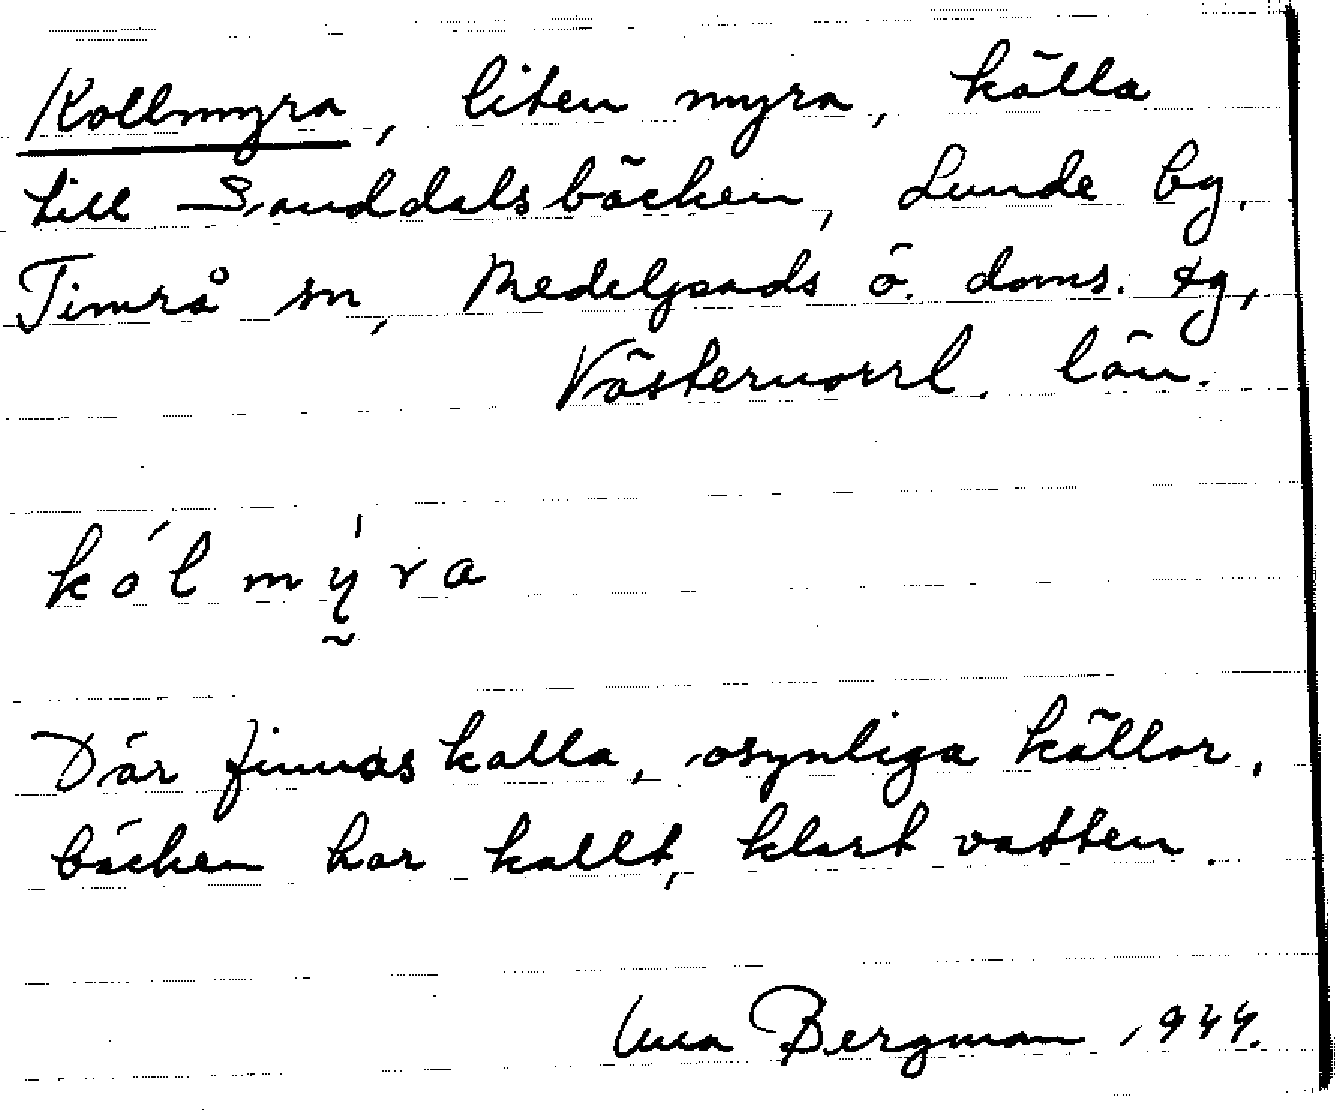 Kollmyra, liten myra, källa
till Sanddalsbäcken, Lunde by.
Timrå sn, Medelpads ö. doms. tg,
Västernorrl. län.
kólmy̰̍ra
Där finnas kalla, osynliga källor,
bäcken har kallt, klart vatten.
Bergman 1944.